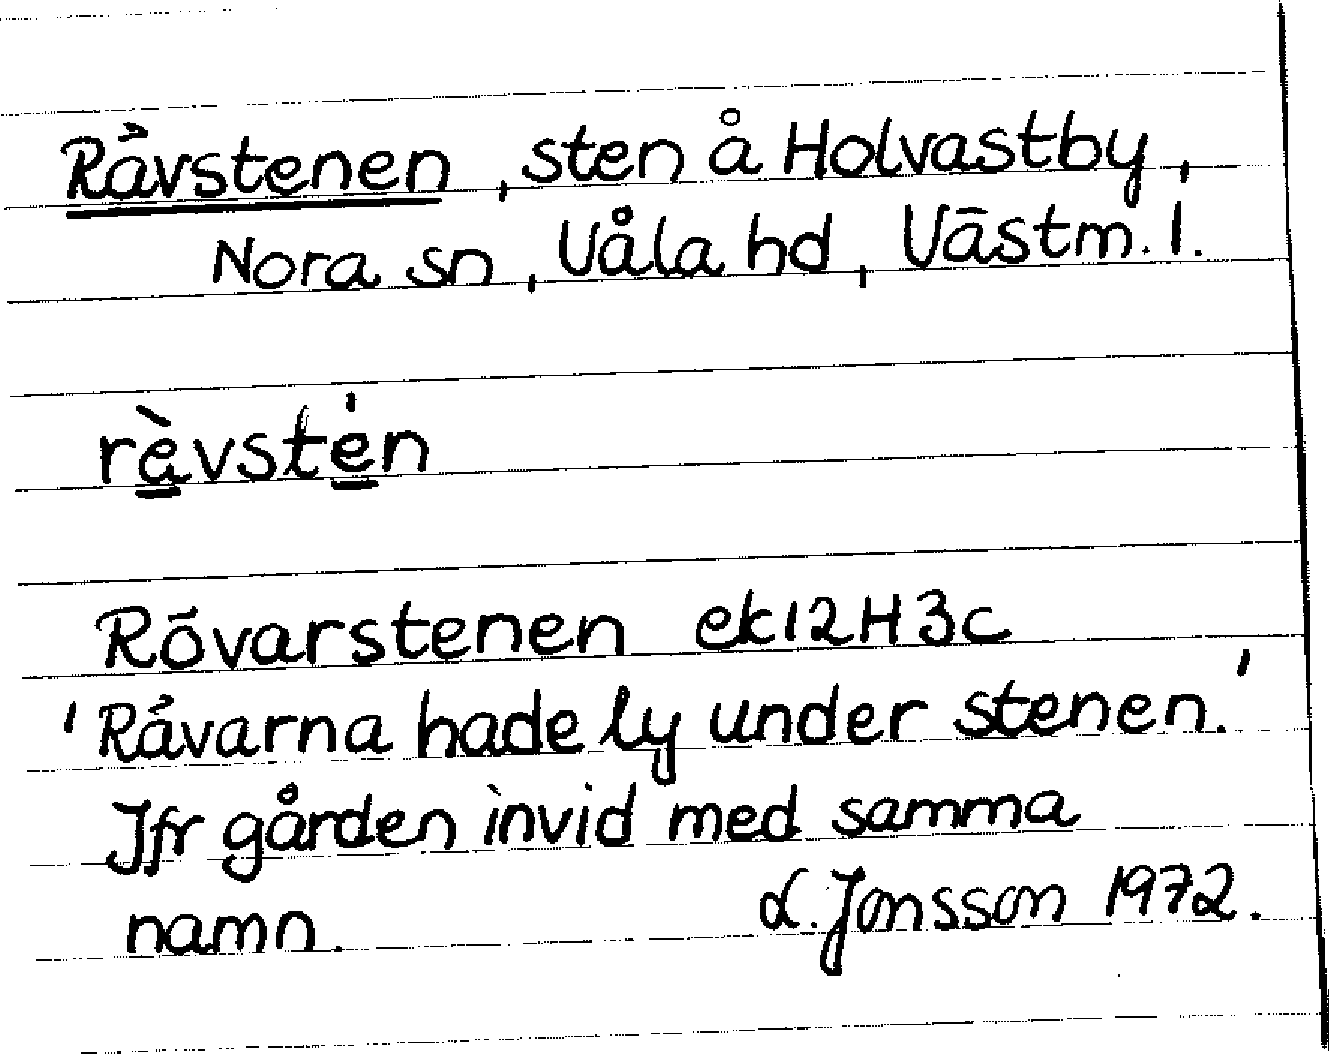 Rävstenen, sten å Holvastby,
Nora sn, Våla hd, Västm. l.
rävsten
Rövarstenen ek 12H3c
'Rävarna hade ly under stenen.'
Jfr gården invid med samma
namn. L. Jonsson 1972.